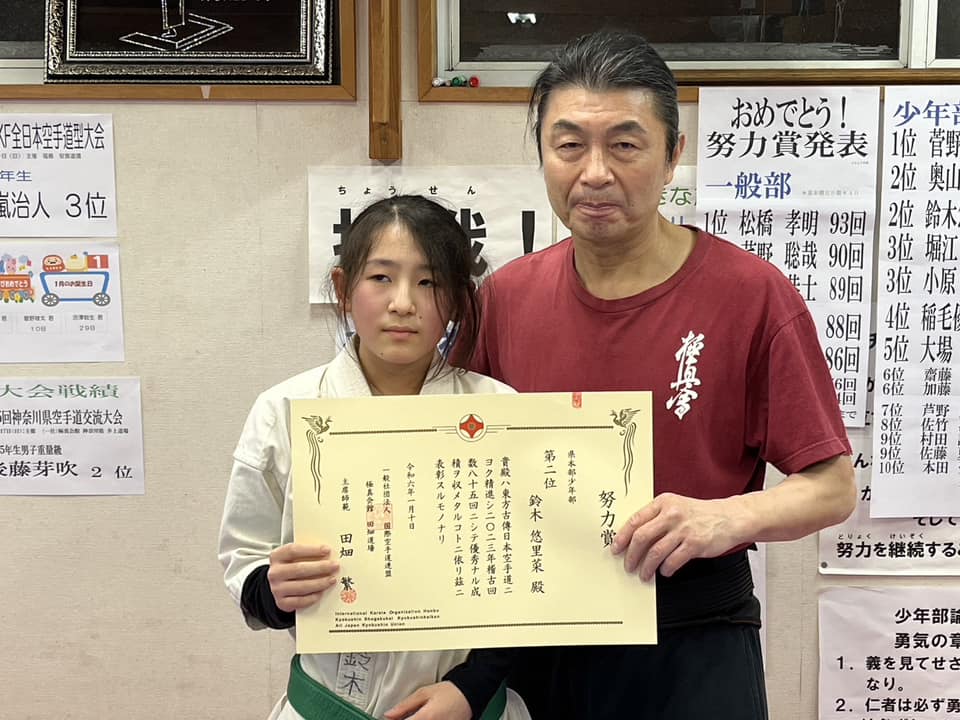 KF全日本空手道型大会
嵐治人 3位
1月のお誕生日
10日
29日
大会戦績
5回神奈川県空手道交流大会
5年生男子重量級
後藤芽吹 2位
ちょうせん
！
おめでとう！
努力賞発表
一般部
1位 松橋 孝明 93回
聡哉 90回
士 89回
88回
86回
少年部
1位 菅野
2位 奥山
2位 鈴木
3位 堀江
3位 小原
4位 稲毛
5位 大場
6位 齋藤
6位 加藤
7位 芦野
8位 佐竹
9位 村田
9位 佐藤
10位 本田
そして
どりょく けいぞく
努力を継続する
少年部
勇気の章
1．義を見てせざ
なり。
2．仁者は必ず勇
極真会
努力賞
県本部少年部
第二位
鈴木 悠里菜 殿
貴殿ハ東方古傳日本空手道ニ
ヨク精進シ二〇二三年稽古回
数八十五回ニシテ優秀ナル成
積ヲ収メタルコトニ依リ茲ニ
表彰スルモノナリ
令和六年一月十日
一般社団法人 国際空手道連盟
極真会館 田畑道場
主席師範 田畑 繁
International Karate Organization Honbu
Kyokushin Shogakukai Kyokushinkaikan
All Japan Kyokushin Union
鈴木